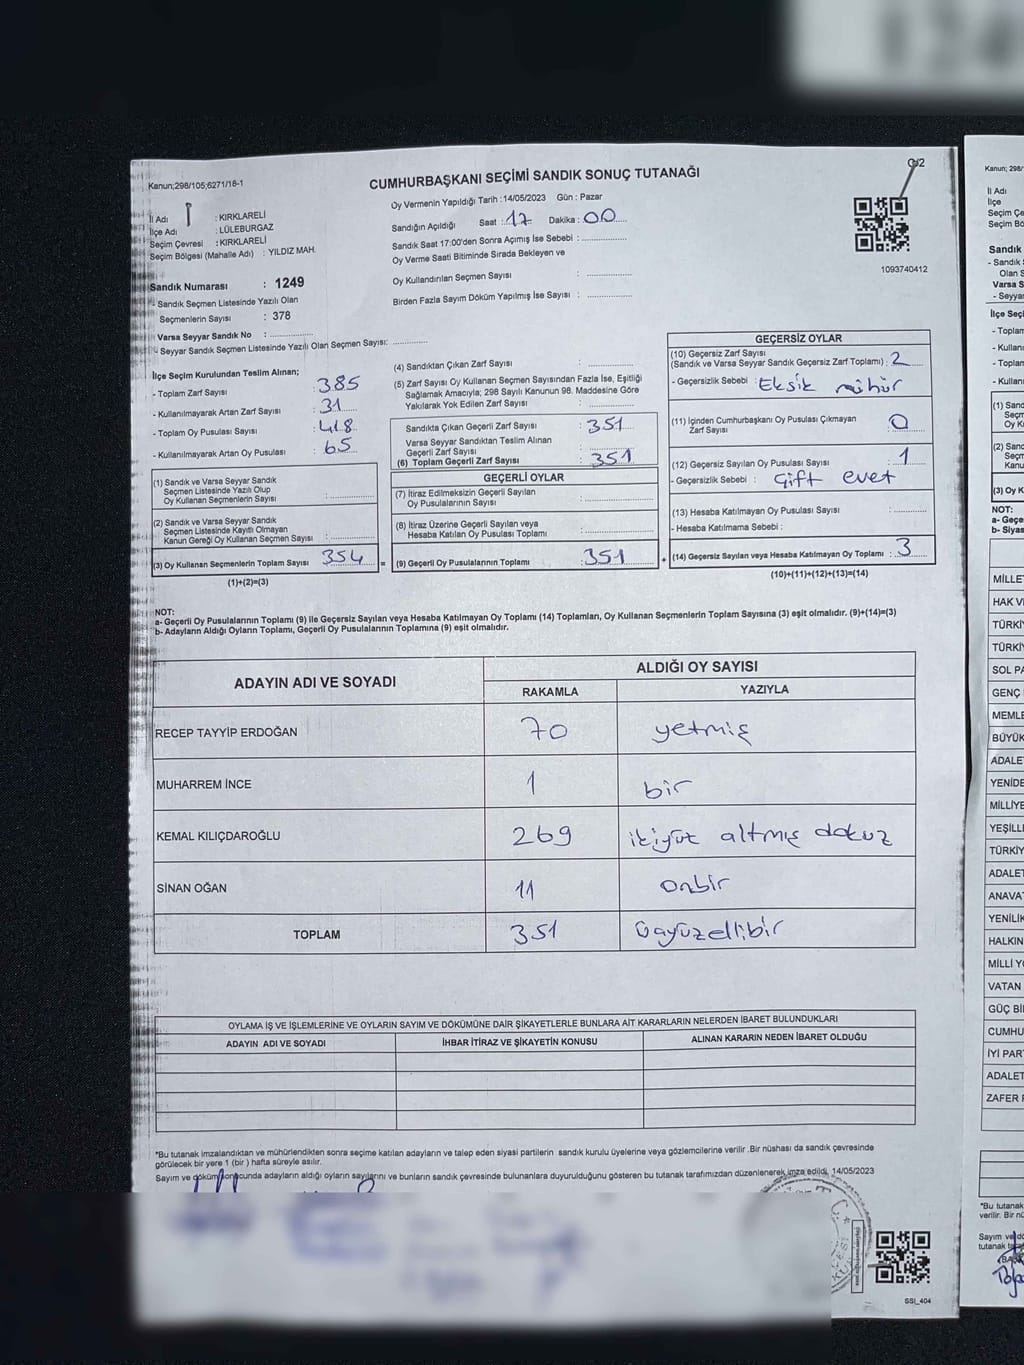 Kanun;298/105;6271/18-1
CUMHURBAŞKANI SEÇİMİ SANDIK SONUÇ TUTANAĞI
İl Adı : KIRKLARELİ
İlçe Adı : LÜLEBURGAZ
Seçim Çevresi : KIRKLARELİ
Seçim Bölgesi (Mahalle Adı) : YILDIZ MAH.
Sandık Numarası : 1249
- Sandık Seçmen Listesinde Yazılı Olan
Seçmenlerin Sayısı : 378
Varsa Seyyar Sandık No :
- Seyyar Sandık Seçmen Listesinde Yazılı Olan Seçmen Sayısı:
Oy Vermenin Yapıldığı Tarih : 14/05/2023 Gün : Pazar
Sandığın Açıldığı Saat : 17 Dakika : 00
Sandık Saat 17:00'den Sonra Açımış İse Sebebi :
Oy Verme Saati Bitiminde Sırada Bekleyen ve
Oy Kullandırılan Seçmen Sayısı :
Birden Fazla Sayım Döküm Yapılmış İse Sayısı :
1093740412
İlçe Seçim Kurulundan Teslim Alınan;
- Toplam Zarf Sayısı : 385
- Kullanılmayarak Artan Zarf Sayısı : 31
- Toplam Oy Pusulası Sayısı : 418
- Kullanılmayarak Artan Oy Pusulası : 65
(1) Sandık ve Varsa Seyyar Sandık
Seçmen Listesinde Yazılı Olup
Oy Kullanan Seçmenlerin Sayısı :
(2) Sandık ve Varsa Seyyar Sandık
Seçmen Listesinde Kayıtlı Olmayan
Kanun Gereği Oy Kullanan Seçmen Sayısı :
(3) Oy Kullanan Seçmenlerin Toplam Sayısı : 354 =
(1)+(2)=(3)
(4) Sandıktan Çıkan Zarf Sayısı :
(5) Zarf Sayısı Oy Kullanan Seçmen Sayısından Fazla İse, Eşitliği
Sağlamak Amacıyla; 298 Sayılı Kanunun 98. Maddesine Göre
Yakılarak Yok Edilen Zarf Sayısı :
Sandıkta Çıkan Geçerli Zarf Sayısı : 351
Varsa Seyyar Sandıktan Teslim Alınan
Geçerli Zarf Sayısı :
(6) Toplam Geçerli Zarf Sayısı : 351
GEÇERLİ OYLAR
(7) İtiraz Edilmeksizin Geçerli Sayılan
Oy Pusulalarının Sayısı :
(8) İtiraz Üzerine Geçerli Sayılan veya
Hesaba Katılan Oy Pusulası Toplamı :
(9) Geçerli Oy Pusulalarının Toplamı : 351 +
GEÇERSİZ OYLAR
(10) Geçersiz Zarf Sayısı
(Sandık ve Varsa Seyyar Sandık Geçersiz Zarf Toplamı) : 2
- Geçersizlik Sebebi : Eksik mühür
(11) İçinden Cumhurbaşkanı Oy Pusulası Çıkmayan
Zarf Sayısı : 0
(12) Geçersiz Sayılan Oy Pusulası Sayısı : 1
- Geçersizlik Sebebi : Çift evet
(13) Hesaba Katılmayan Oy Pusulası Sayısı :
- Hesaba Katılmama Sebebi :
(14) Geçersiz Sayılan veya Hesaba Katılmayan Oy Toplamı : 3
(10)+(11)+(12)+(13)=(14)
NOT:
a- Geçerli Oy Pusulalarının Toplamı (9) ile Geçersiz Sayılan veya Hesaba Katılmayan Oy Toplamı (14) Toplamları, Oy Kullanan Seçmenlerin Toplam Sayısına (3) eşit olmalıdır. (9)+(14)=(3)
b- Adayların Aldığı Oyların Toplamı, Geçerli Oy Pusulalarının Toplamına (9) eşit olmalıdır.
ADAYIN ADI VE SOYADI ALDIĞI OY SAYISI
RAKAMLA YAZIYLA
RECEP TAYYİP ERDOĞAN 70 yetmiş
MUHARREM İNCE 1 bir
KEMAL KILIÇDAROĞLU 269 ikiyüz altmış dokuz
SİNAN OĞAN 11 onbir
TOPLAM 351 üçyüzellibir
OYLAMA İŞ VE İŞLEMLERİNE VE OYLARIN SAYIM VE DÖKÜMÜNE DAİR ŞİKAYETLERLE BUNLARA AİT KARARLARIN NELERDEN İBARET BULUNDUKLARI
ADAYIN ADI VE SOYADI İHBAR İTİRAZ VE ŞİKAYETİN KONUSU ALINAN KARARIN NEDEN İBARET OLDUĞU
*Bu tutanak imzalandıktan ve mühürlendikten sonra seçime katılan adayların ve talep eden siyasi partilerin sandık kurulu üyelerine veya gözlemcilerine verilir .Bir nüshası da sandık çevresinde
görülecek bir yere 1 (bir ) hafta süreyle asılır.
Sayım ve döküm sonucunda adayların aldığı oyların sayılarını ve bunların sandık çevresinde bulunanlara duyurulduğunu gösteren bu tutanak tarafımızdan düzenlenerek imza edildi. 14/05/2023
SSI_404
Kanun; 298/
İl Adı
İlçe
Seçim Çe
Seçim Bö
Sandık
- Sandık
Olan S
Varsa S
- Seyya
İlçe Seçi
- Toplam
- Kullanı
- Toplam
- Kullanı
(1) Sand
Seçm
Oy K
(2) Sand
Seçm
Kanu
(3) Oy K
NOT:
a- Geçe
b- Siyas
MİLLET
HAK VE
TÜRKİY
TÜRKİY
SOL PA
GENÇ
MEMLE
BÜYÜK
ADALET
YENİDE
MİLLİYE
YEŞİLL
TÜRKİY
ADALET
ANAVA
YENİLİK
HALKIN
MİLLİ YO
VATAN
GÜÇ Bİ
CUMHU
İYİ PAR
ADALET
ZAFER P
*Bu tutanak
verilir. Bir nü
Sayım ve dö
tutanak tar